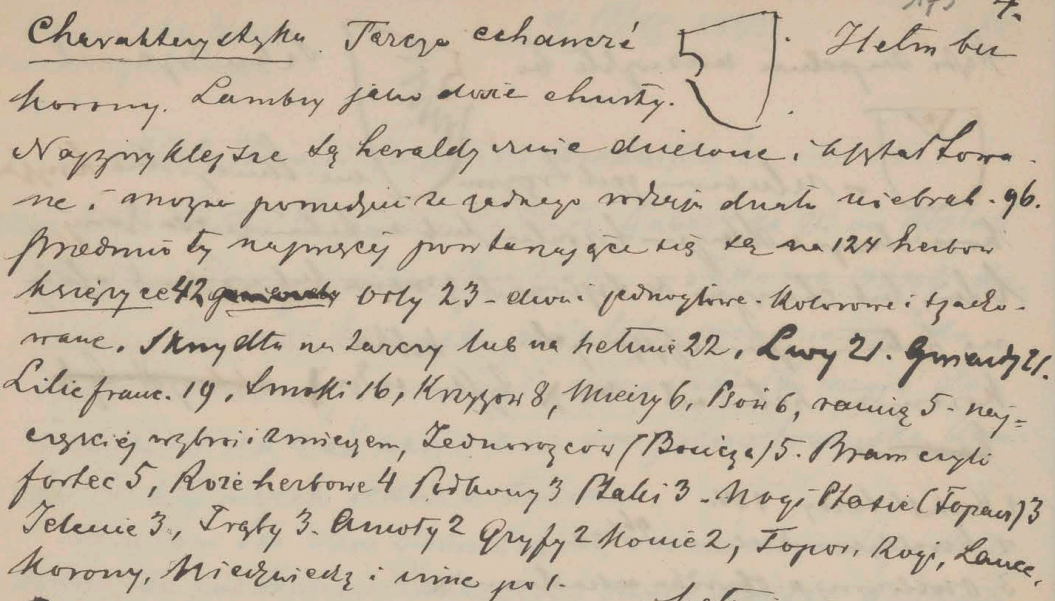 Charakterystyka. Tarcza Hełm bez
korony. Labry jako duże chusty.
Najzwyklejsze są heraldycznie dzielone i kształtowa-
ne i można pomiędzy ze żadnego rodzaju działu niebrak. 96.
Przedmioty najwięcej powtarzające się są na 124 herbów
księżyce 42 Orły 23 - dwu i jednogłowe. Kolorowe i szacho-
wane. Skrzydła na tarczy lub na hełmie 22, Lwy 21. Gwiazdy 21.
Lilie franc. 19, Smoki 16, Krzyżów 8, Mieczy 6, 6, ramię 5 - naj=
częściej w zbroi i z mieczem, Jednorożców (Bończa) 5. Bram czyli
fortec 5, Róże herbowe 4 Podkowy 3 Ptaki 3 - Nogi Ptasie (Topacz) 3
Jelenie 3, Trąby 3. 2 Gryfy 2 Konie 2, Topor, Rogi, Lance,
Korony, Niedźwiedź i inne po 1.